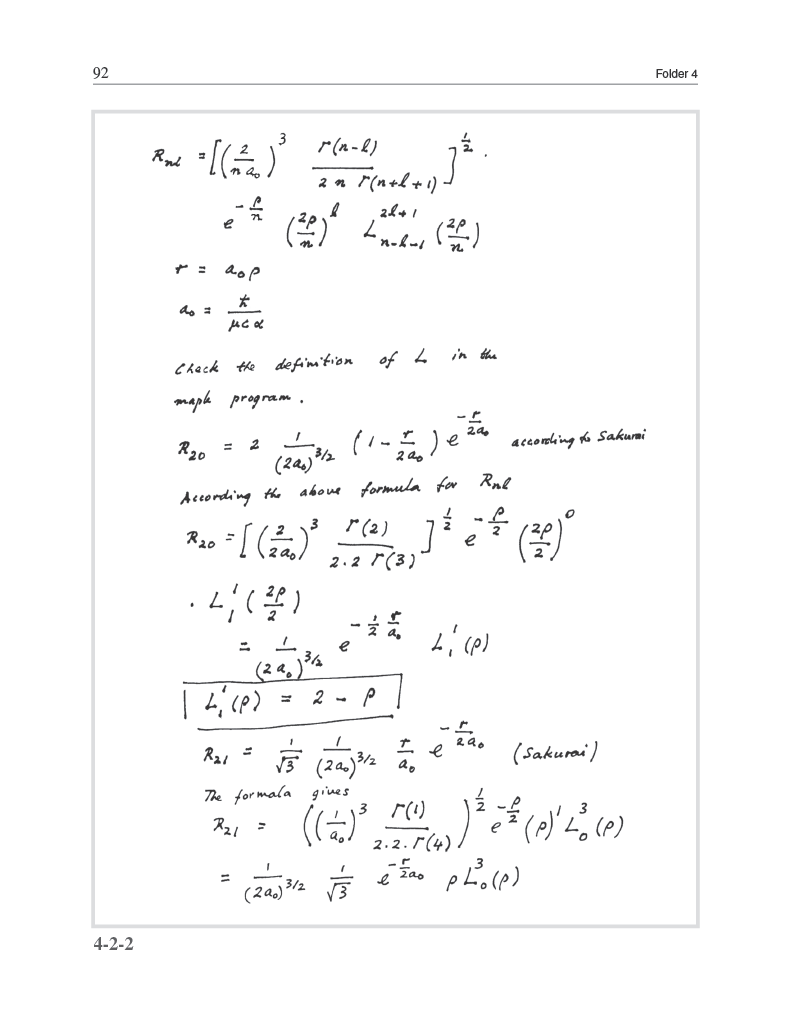 92
Folder 4
R_{nl} = [ (2/(n a₀))³ Γ(n-l) / (2n Γ(n+l+1)) ]^{1/2} .
e^{-ρ/n} (2ρ/n)^l L_{n-l-1}^{2l+1} (2ρ/n)
r = a₀ρ
a₀ = ħ/(μcα)
Check the definition of L in the
maple program.
R₂₀ = 2 1/(2a₀)^{3/2} (1 - r/(2a₀)) e^{-r/(2a₀)} according to Sakurai
According the above formula for R_{nl}
R₂₀ = [ (2/(2a₀))³ Γ(2)/(2·2 Γ(3)) ]^{1/2} e^{-ρ/2} (2ρ/2)⁰
· L₁¹ (2ρ/2)
= 1/(2a₀)^{3/2} e^{-(1/2)(r/a₀)} L₁¹(ρ)
L₁¹(ρ) = 2 - ρ
R₂₁ = 1/√3 1/(2a₀)^{3/2} r/a₀ e^{-r/(2a₀)} (Sakurai)
The formula gives
R₂₁ = ((1/a₀)³ Γ(1)/(2.2.Γ(4)))^{1/2} e^{-ρ/2} (ρ)¹ L₀³(ρ)
= 1/(2a₀)^{3/2} 1/√3 e^{-r/(2a₀)} ρ L₀³(ρ)
4-2-2